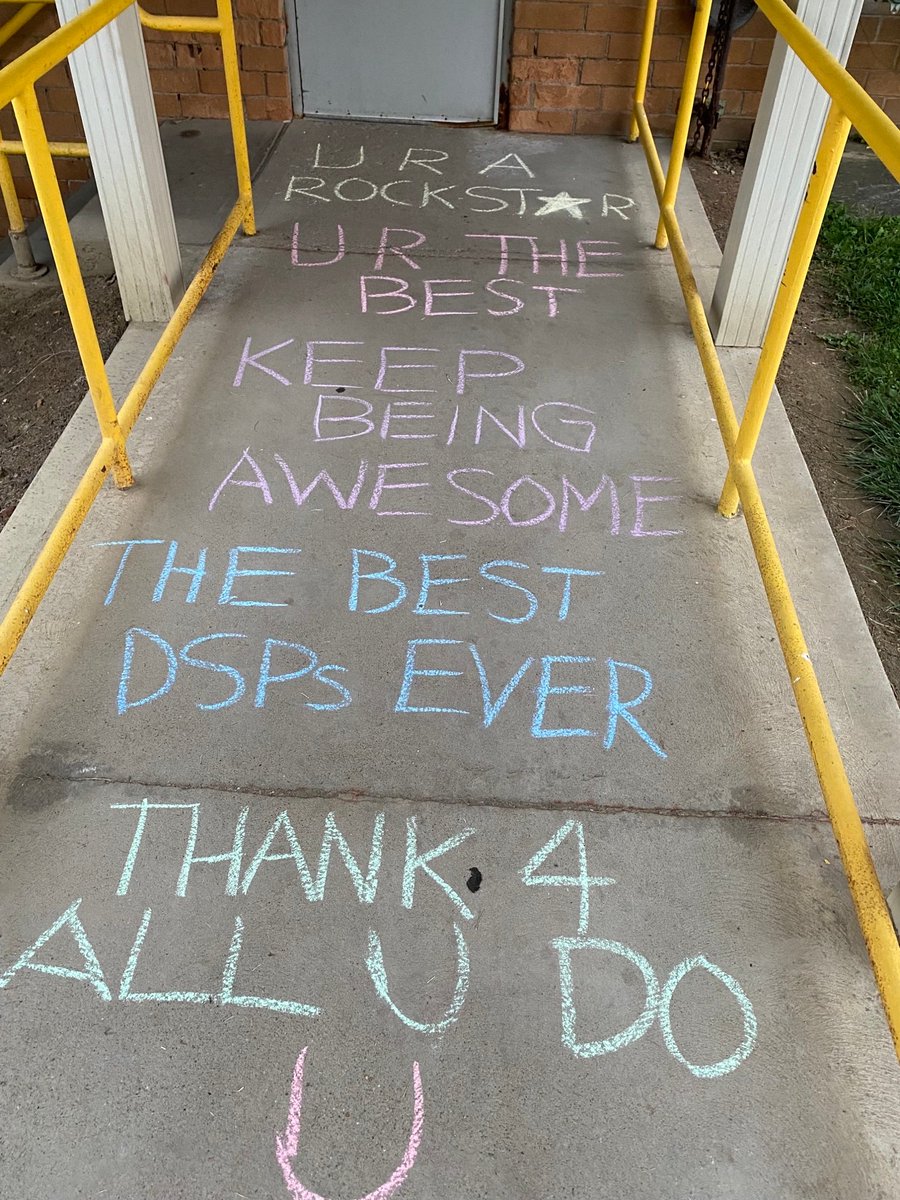 U R A
ROCKST★R
U R THE
BEST
KEEP
BEING
AWESOME
THE BEST
DSPs EVER
THANK 4
ALL U DO
U